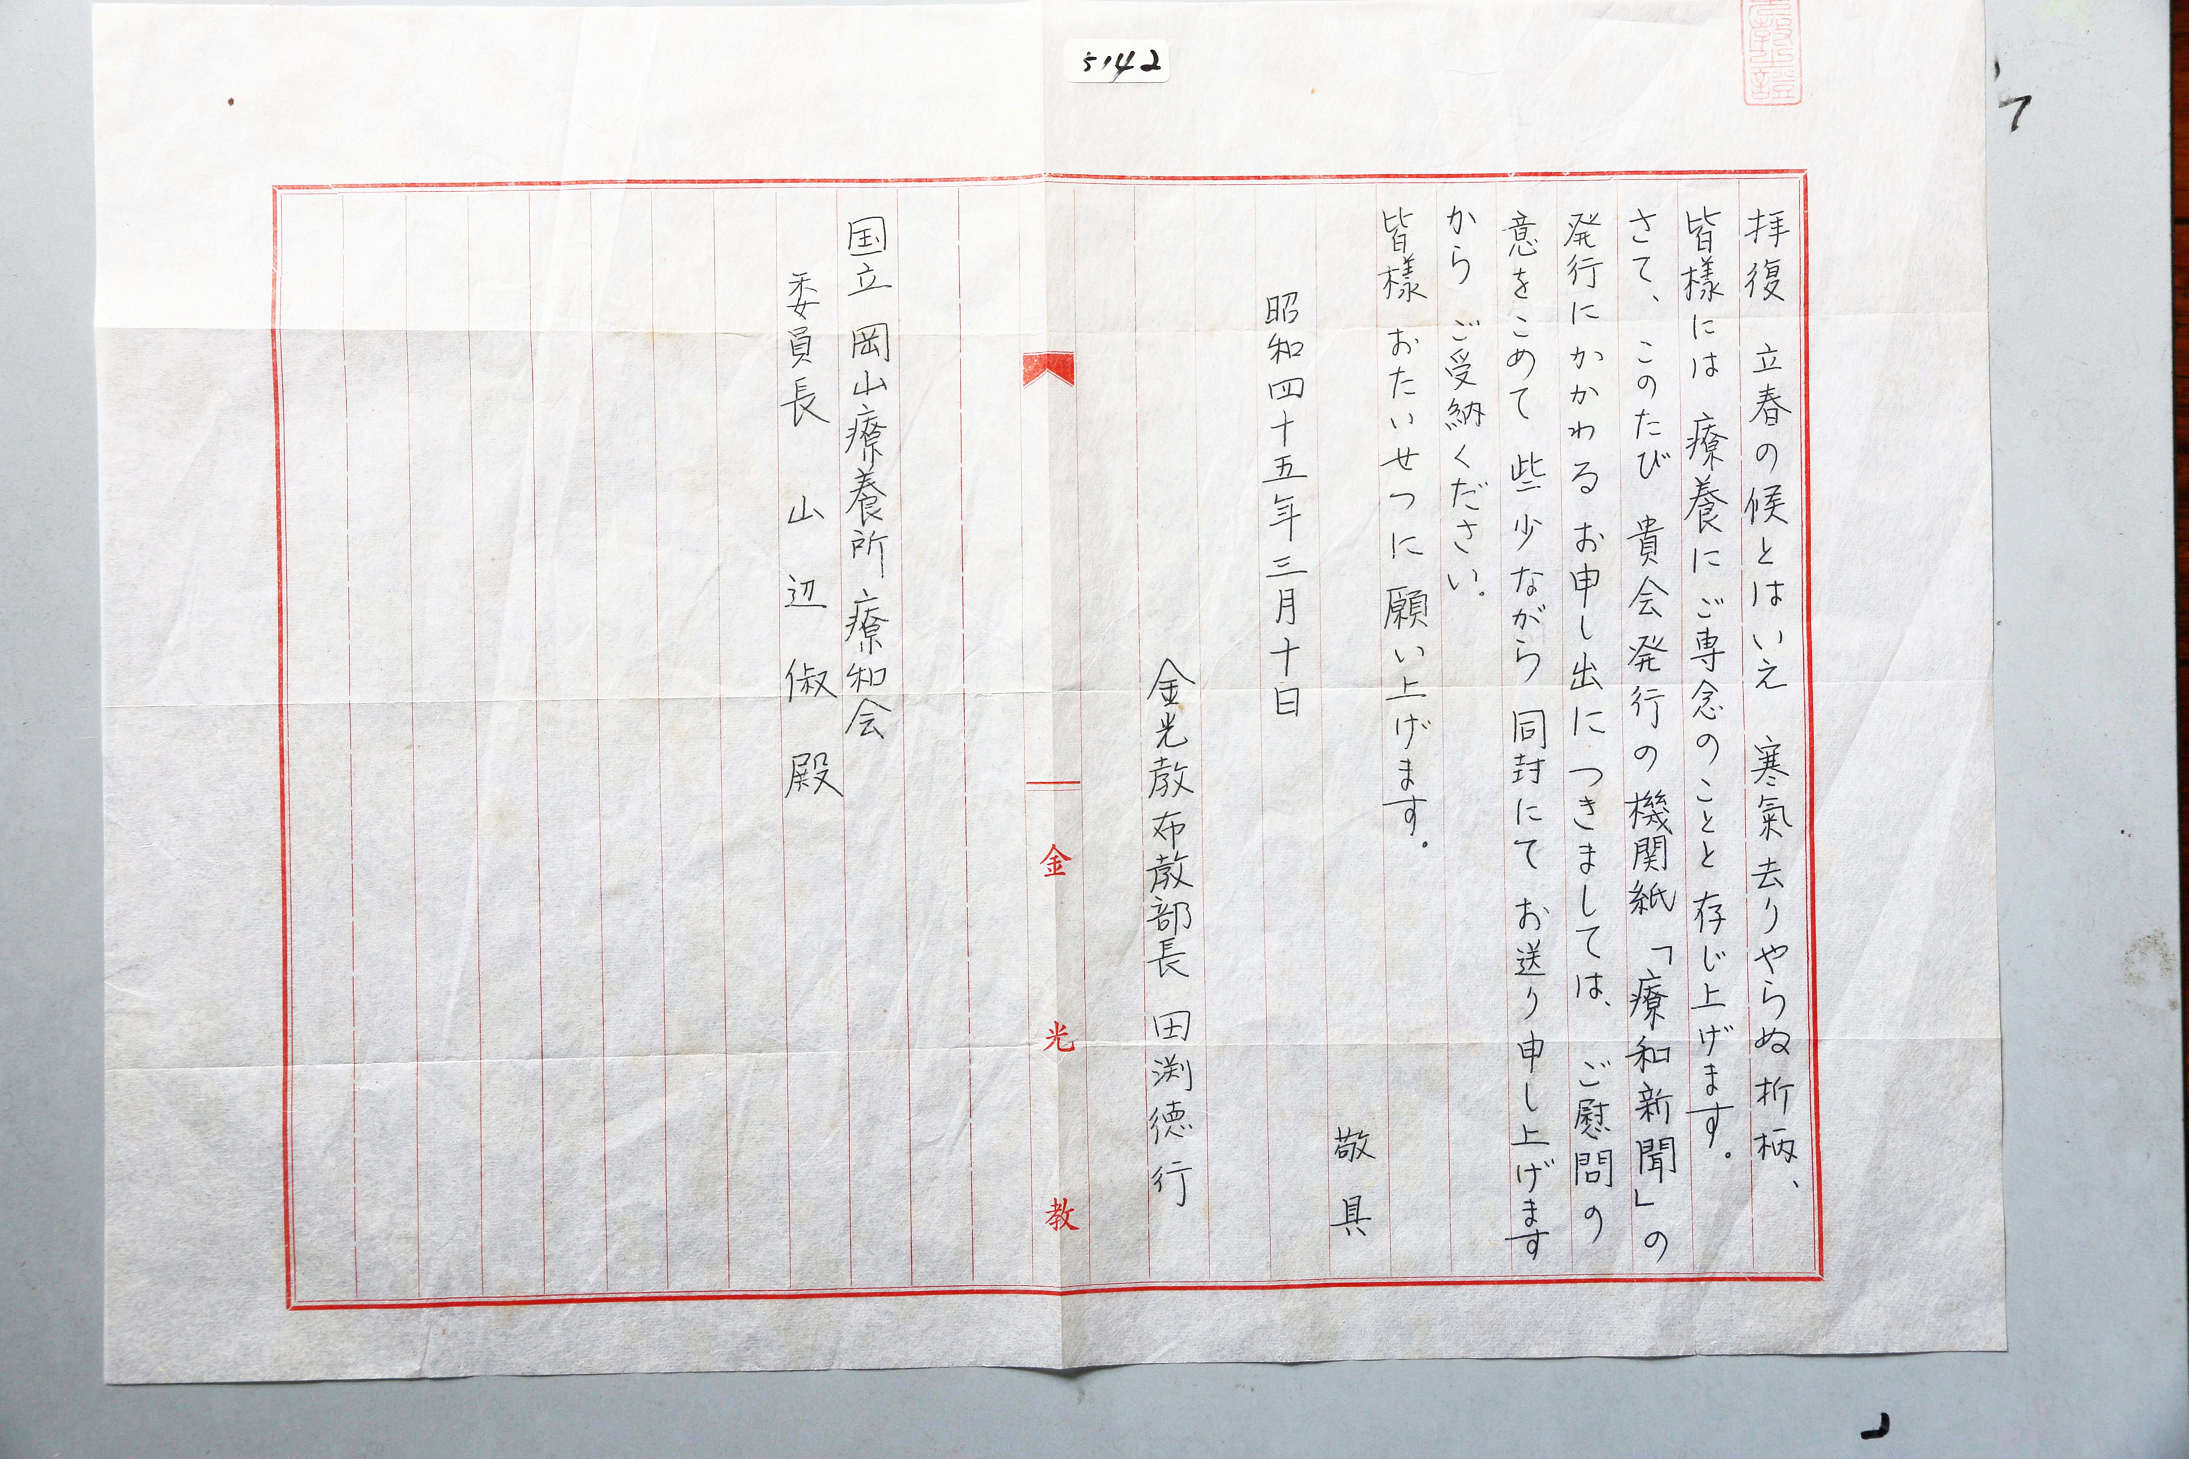 5142
拝復 立春の候とはいえ 寒氣去りやらぬ折柄、
皆様には 療養にご専念のことと存じ上げます。
さて、このたび 貴会発行の機関紙「療和新聞」の
発行にかかわるお申し出につきましては、ご慰問の
意をこめて 些少ながら 同封にてお送り申し上げます
から ご受納ください。
皆様 おたいせつに願い上げます。
敬具
昭和四十五年三月十日
金光教布教部長 田渕徳行
金光教
国立岡山療養所療和会
委員長 山辺俶殿